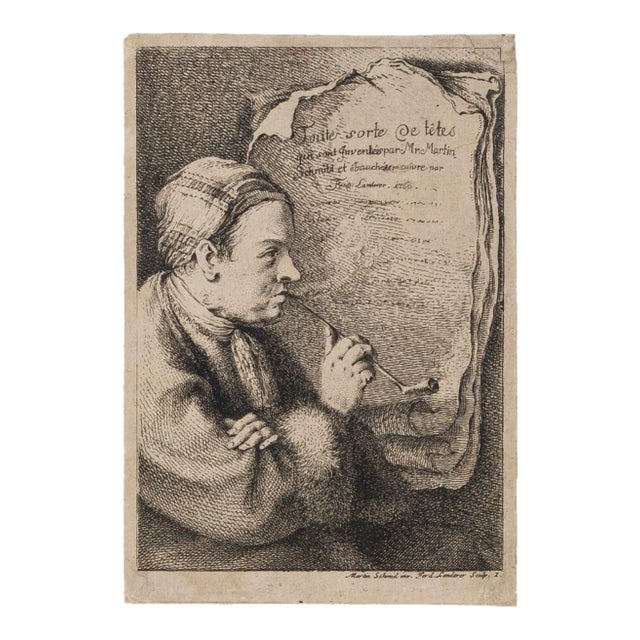 Toute sorte De têtes
qui sont Inventées par Mr. Martin
Schmitd et ébauchées cuivre par
Ferd. Landerer. 1760.
Martin Schmid inv. Ferd. Landerer Sculp. 1.